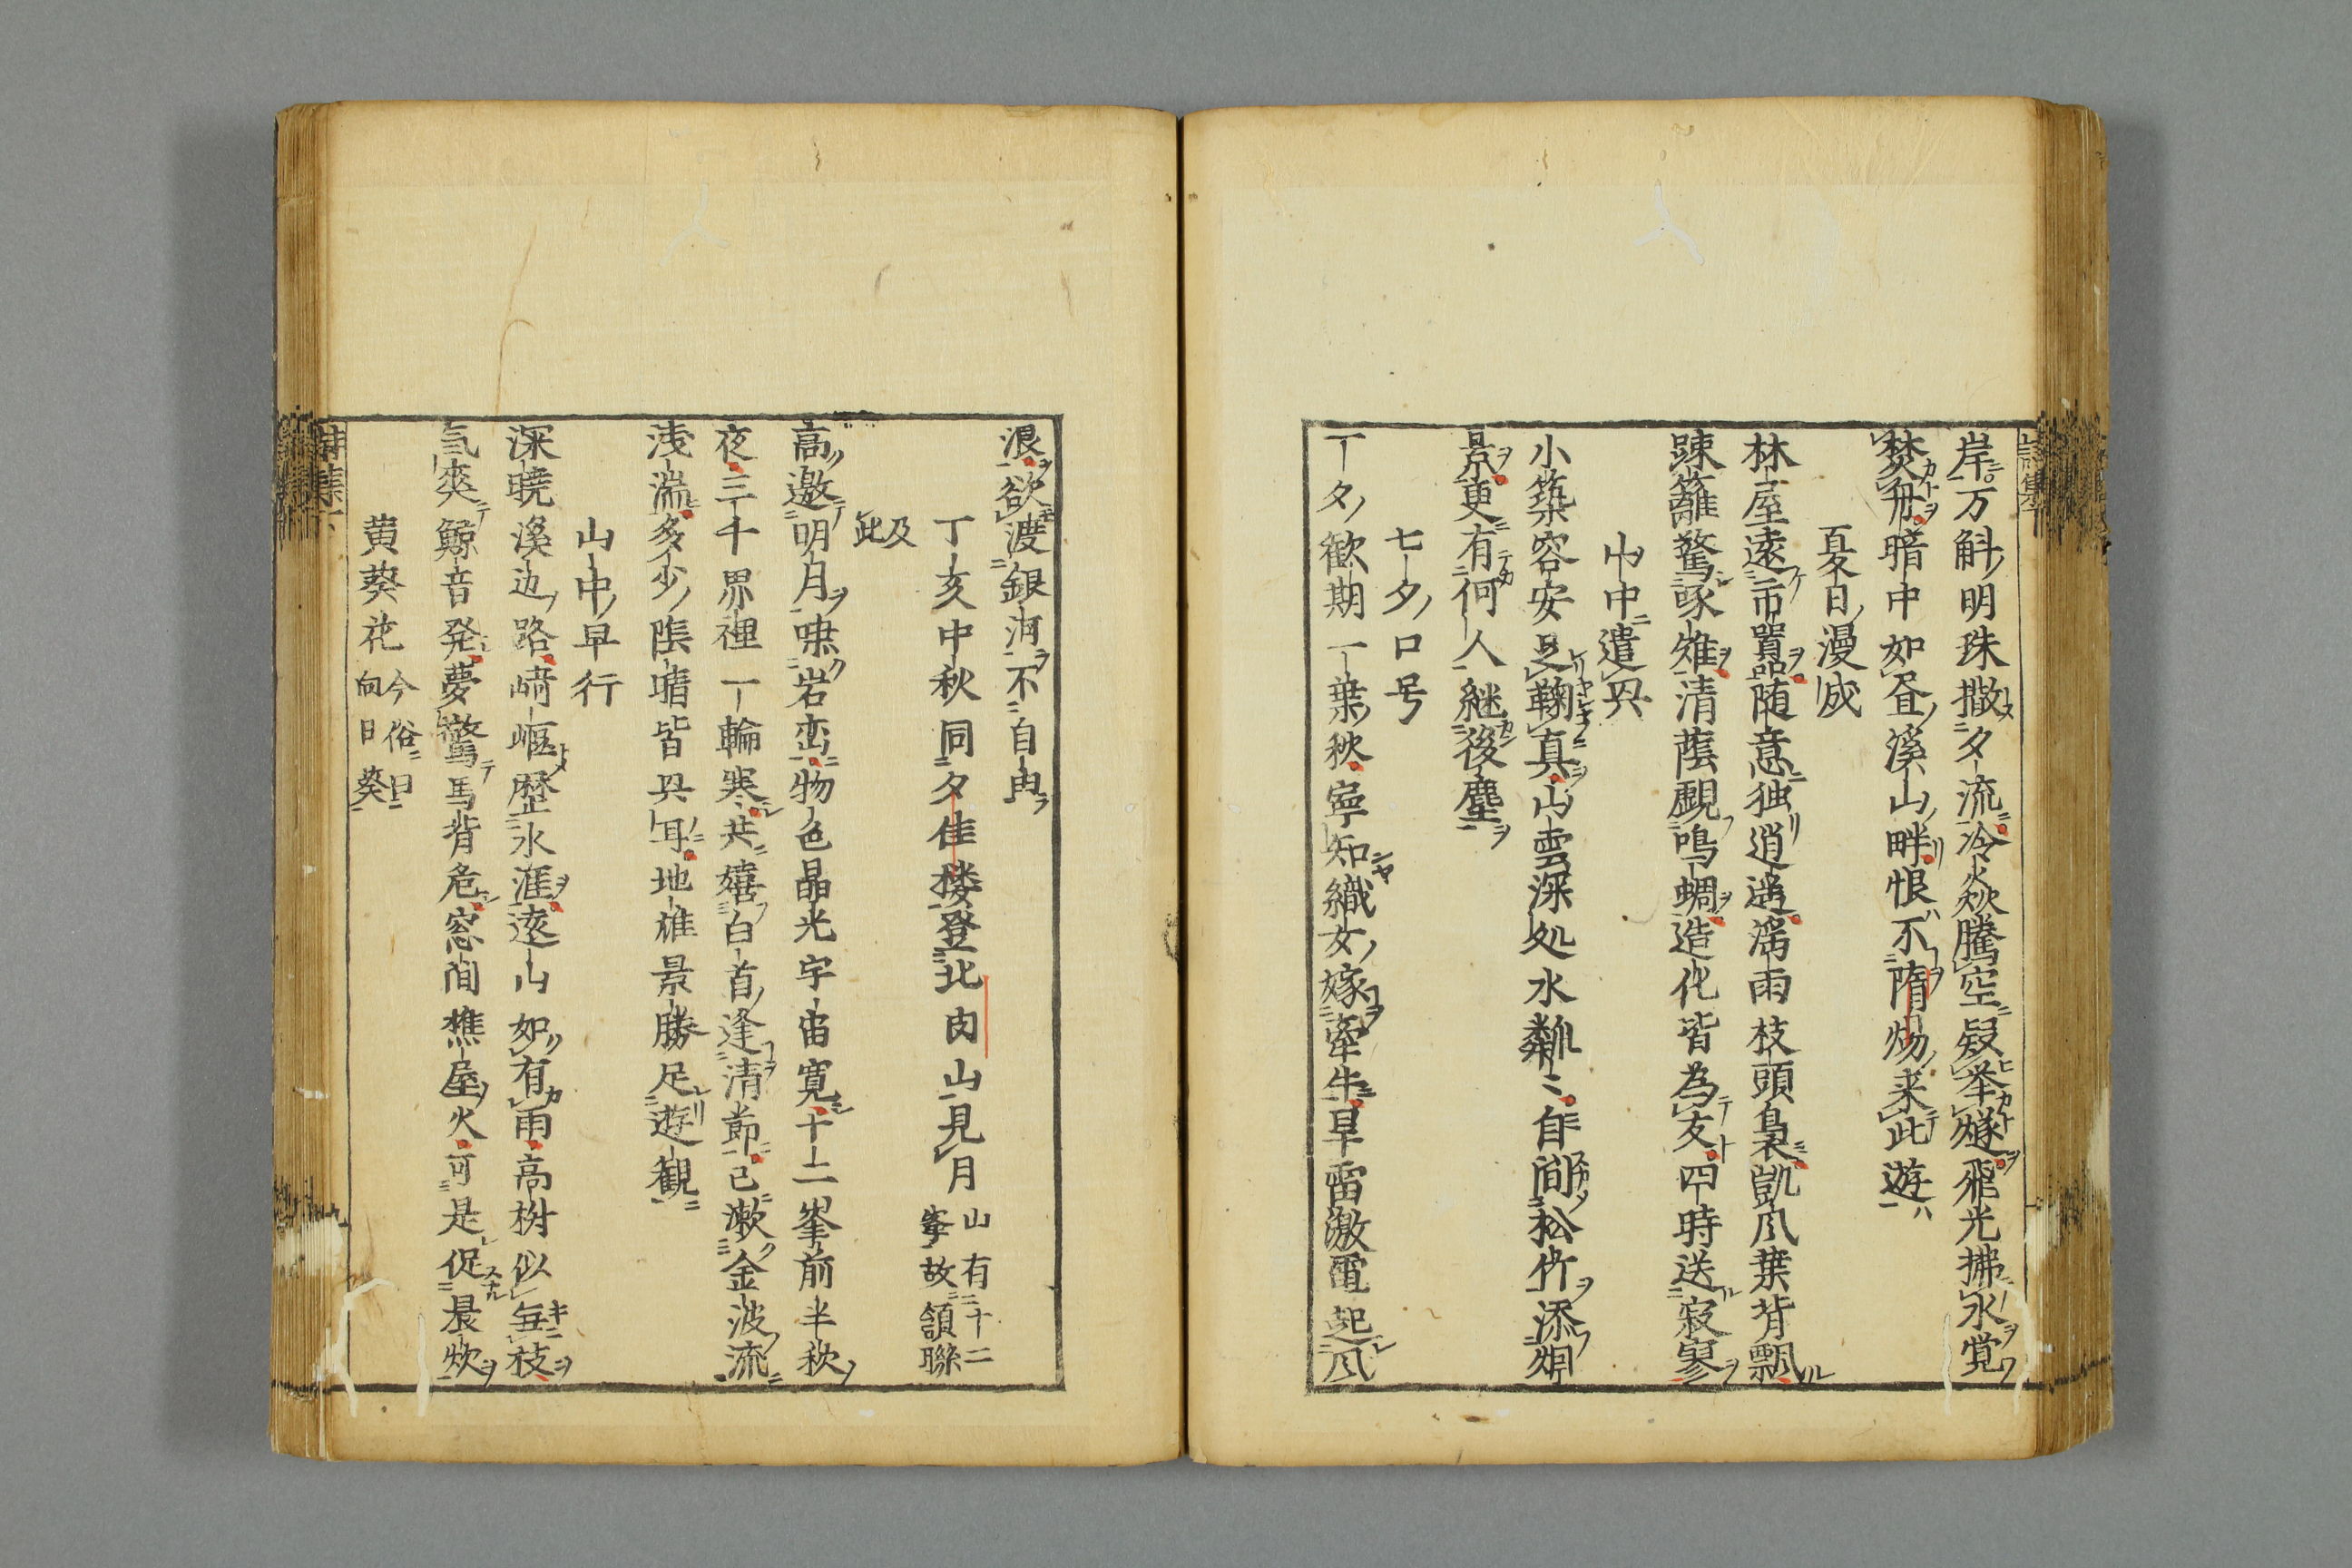 岸万斛明珠撒夕流冷焱騰空疑举燧飛光拂水覚
焚舟暗中如昼溪山畔恨不隋煬来此遊
夏日漫成
林屋遠市囂随意独逍遥濡雨枝頭裊凱风葉背飄
踈籬驚啄雉清蔭覷鳴蜩造化皆為友四時送寂寥
山中遣興
小築容安足鞠真山雲深処水粼〻自間松竹添烟
景更有何人継後塵
七夕口号
一夕歓期一葉秋寧知織女嫁牽牛旱雷激電起风
浪欲渡銀河不自由
丁亥中秋同夕佳楼登北肉山見月山有十二峯故頷聯
及此
高邀明月嘯岩巒物色晶光宇宙寛十二峯前半秋
夜三千界裡一輪寒共嬉白首逢清節已漱金波流
浅湍多少陰晴皆興耳地雄景勝足遊観
山中早行
深暁溪辺路崎嶇歴水涯遠山如有雨高樹似無枝
氣爽鯨音発夢驚馬背危窓間樵屋火可是促晨炊
黄葵花今俗曰向日葵